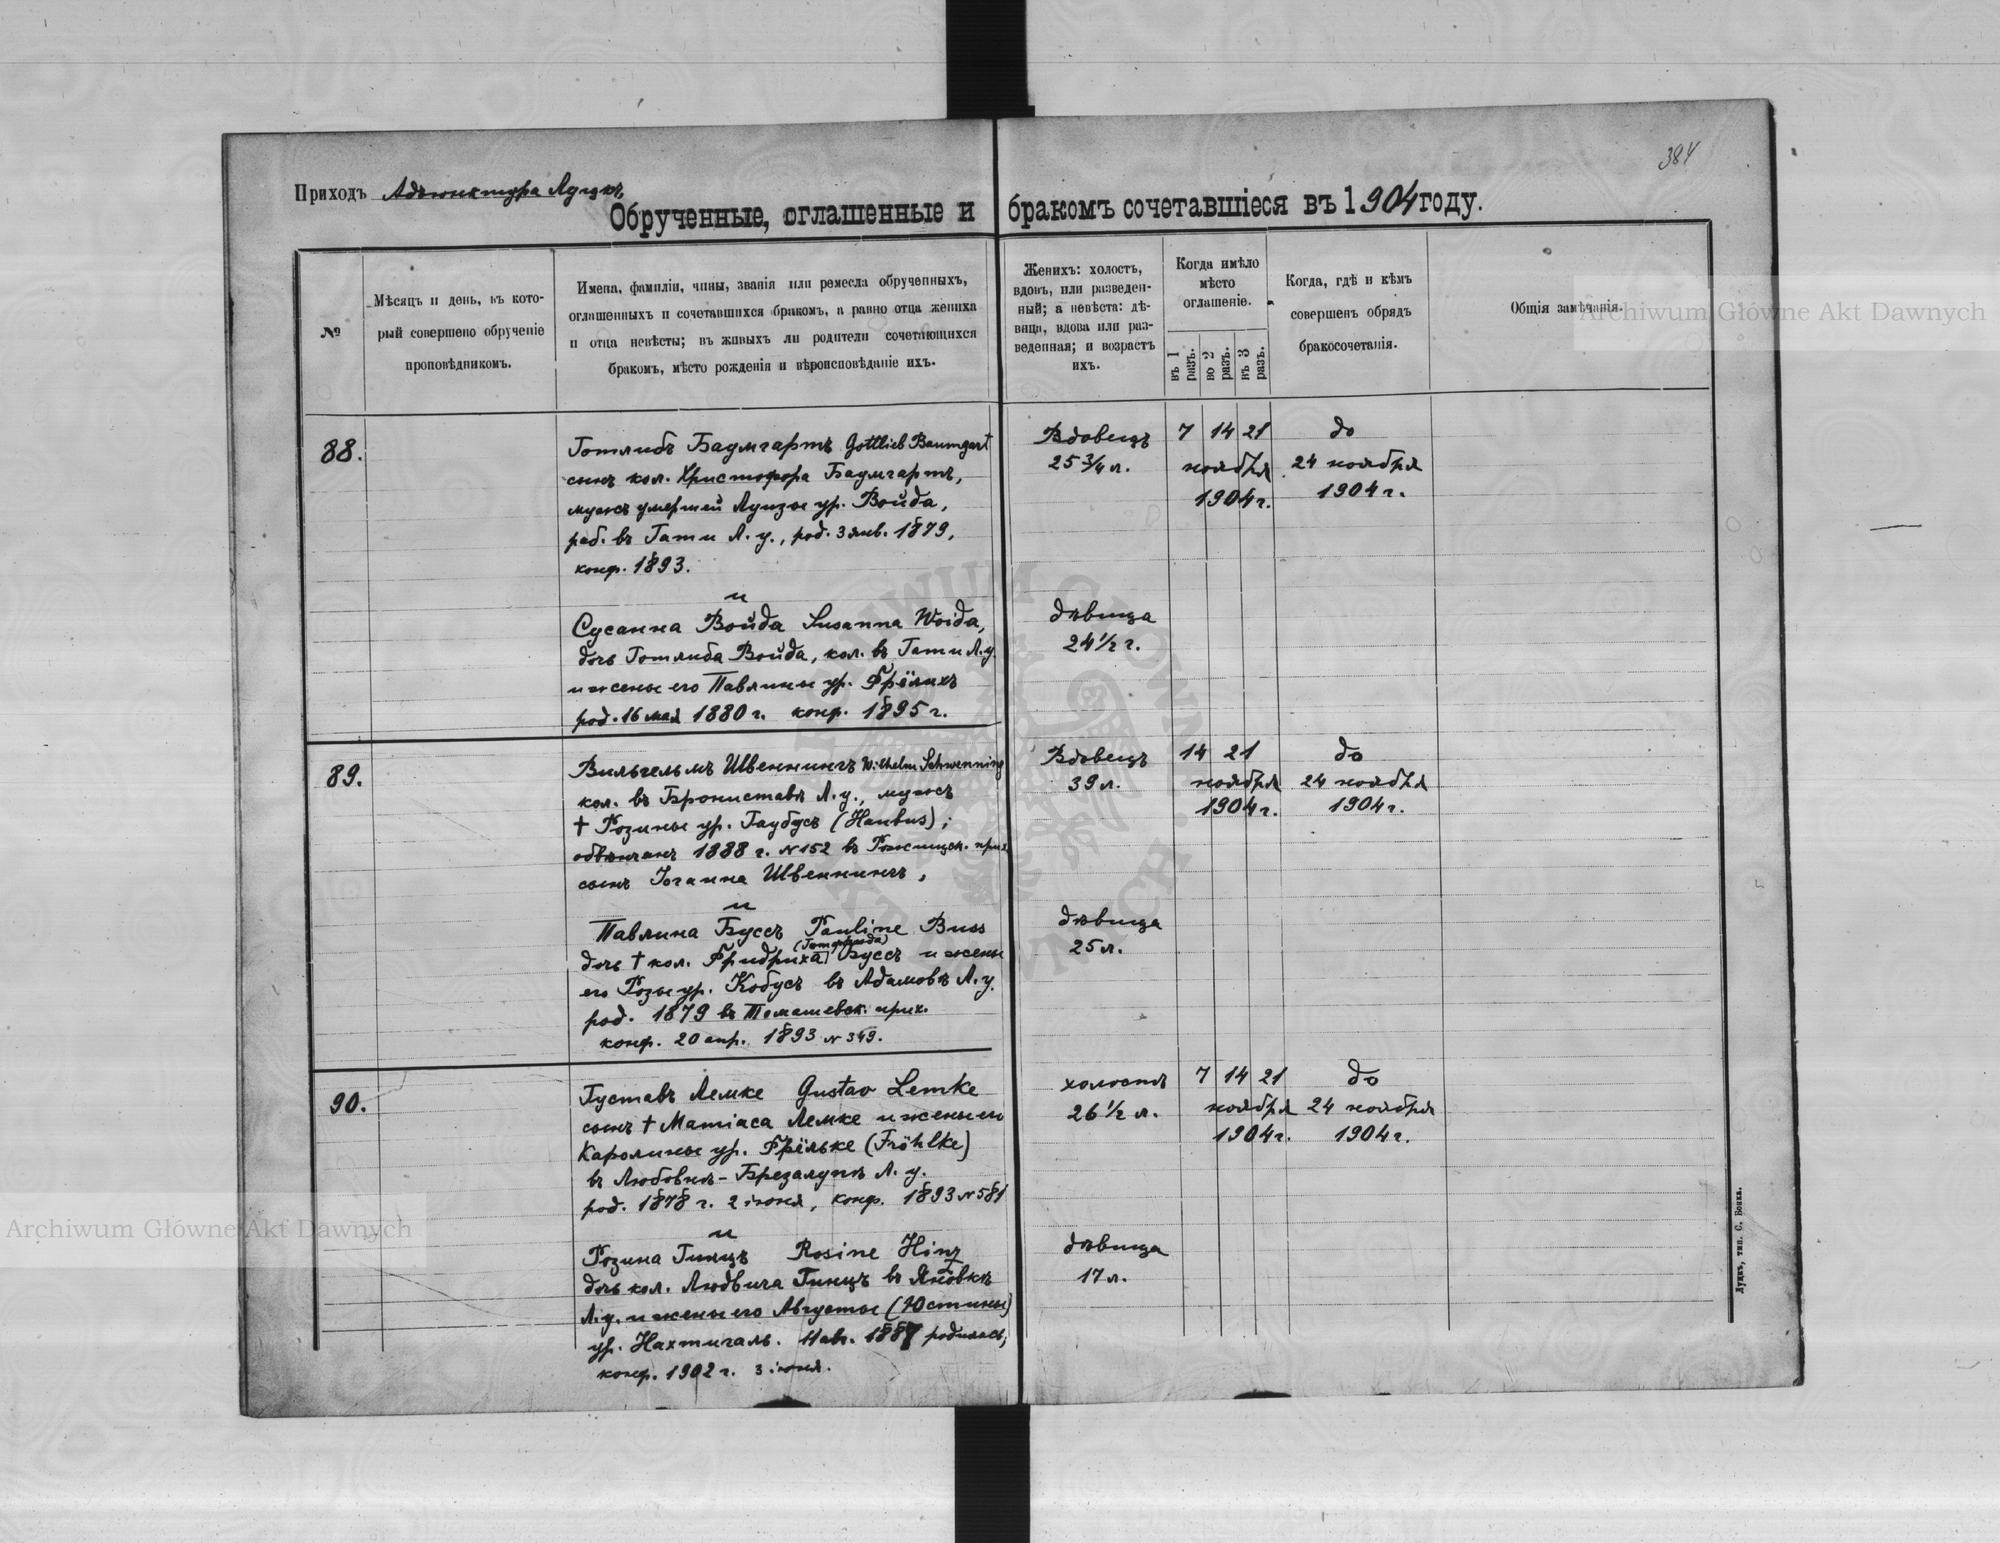 384
Приходъ Адъюнктура Луцкъ
Обрученные, оглашенные и бракомъ сочетавшіеся въ 1904 году.
№
Мѣсяцъ и день, въ кото-
рый совершено обрученіе
проповѣдникомъ.
Имена, фамиліи, чины, званія или ремесла обрученныхъ,
оглашенныхъ и сочетавшихся бракомъ, а равно отца жениха
и отца невѣсты; въ живыхъ ли родители сочетающихся
бракомъ, мѣсто рожденія и вѣроисповѣданіе ихъ.
Женихъ: холостъ,
вдовъ, или разведен-
ный; а невѣста: дѣ-
вица, вдова или раз-
веденная; и возрастъ
ихъ.
Когда имѣло
мѣсто
оглашеніе.
въ 1 разъ.
во 2 разъ.
въ 3 разъ.
Когда, гдѣ и кѣмъ
совершенъ обрядъ
бракосочетанія.
Общія замѣчанія.
88.
Готлибъ Баумгартъ Gottlieb Baumgart
сынъ кол. Христофора Баумгартъ,
мужъ умершей Луизы ур. Войда,
раб. въ Гати Л. у., род. 3 янв. 1879,
конф. 1893.
и
Сусанна Войда Susanna Woida,
дочь Готлиба Войда, кол. въ Гати Л.у.
и жены его Павлины ур. Фрёлихъ
род. 16 мая 1880 г. конф. 1895 г.
Вдовецъ
25 3/4 л.
дѣвица
24 1/2 г.
7 14 21
ноября
1904 г.
до
24 ноября
1904 г.
89.
Вильгельмъ Швеннингъ Wilhelm Schwenning
кол. въ Брониставѣ Л. у., мужъ
† Розины ур. Гаубусъ (Haubus);
обвѣнчанъ 1888 г. № 152 въ Рожищск. прих.
сынъ Іоганна Швеннингъ,
и
Павлина Буссъ Pauline Buss
(Готфрида)
дочь † кол. Фридриха Буссъ и жены
его Розы ур. Кобусъ въ Адамовкѣ Л. у.
род. 1879 въ Томашевск. прих.
конф. 20 апр. 1893 № 349.
Вдовецъ
39 л.
дѣвица
25 л.
14 21
ноября
1904 г.
до
24 ноября
1904 г.
90.
Густавъ Лемке Gustav Lemke
сынъ † Матіаса Лемке и жены его
Каролины ур. Фрёльке (Fröhlke)
въ Любовкѣ-Брезалупѣ Л. у.
род. 1878 г. 2 іюня, конф. 1893 № 581
и
Розина Гинцъ Rosine Hinz
дочь кол. Людвига Гинцъ въ Яновкѣ
Л.у. и жены его Августы (Юстины)
ур. Нахтигаль. 11 авг. 1887 родилась,
конф. 1902 г. 3 іюня.
холостъ
26 1/2 л.
дѣвица
17 л.
7 14 21
ноября
1904 г.
до
24 ноября
1904 г.
Луцкъ, тип. С. Бонка.
Archiwum Główne Akt Dawnych
Archiwum Główne Akt Dawnych